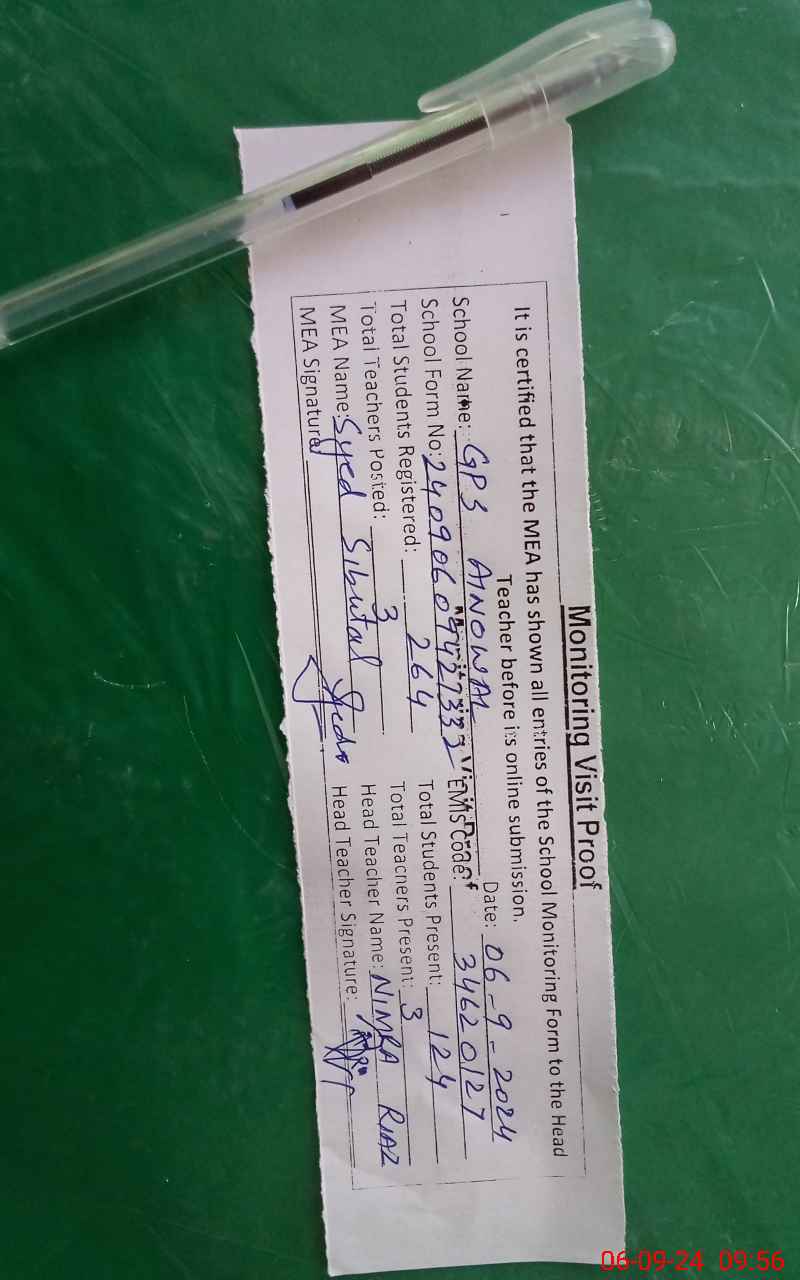 Monitoring Visit Proof
It is certified that the MEA has shown all entries of the School Monitoring Form to the Head
Teacher before its online submission.
Date: 06-9-2024
School Name: GPS AINOWAL
Monitoring Visit Proof
School Form No: EMIS Code: 34620127
Total Students Registered: 264 Total Students Present: 124
Total Teachers Posted: 3 Total Teachers Present: 3
MEA Name: Syed Sibutal Head Teacher Name: NIMRA RIAZ
MEA Signature Head Teacher Signature:
06-09-24 09:56